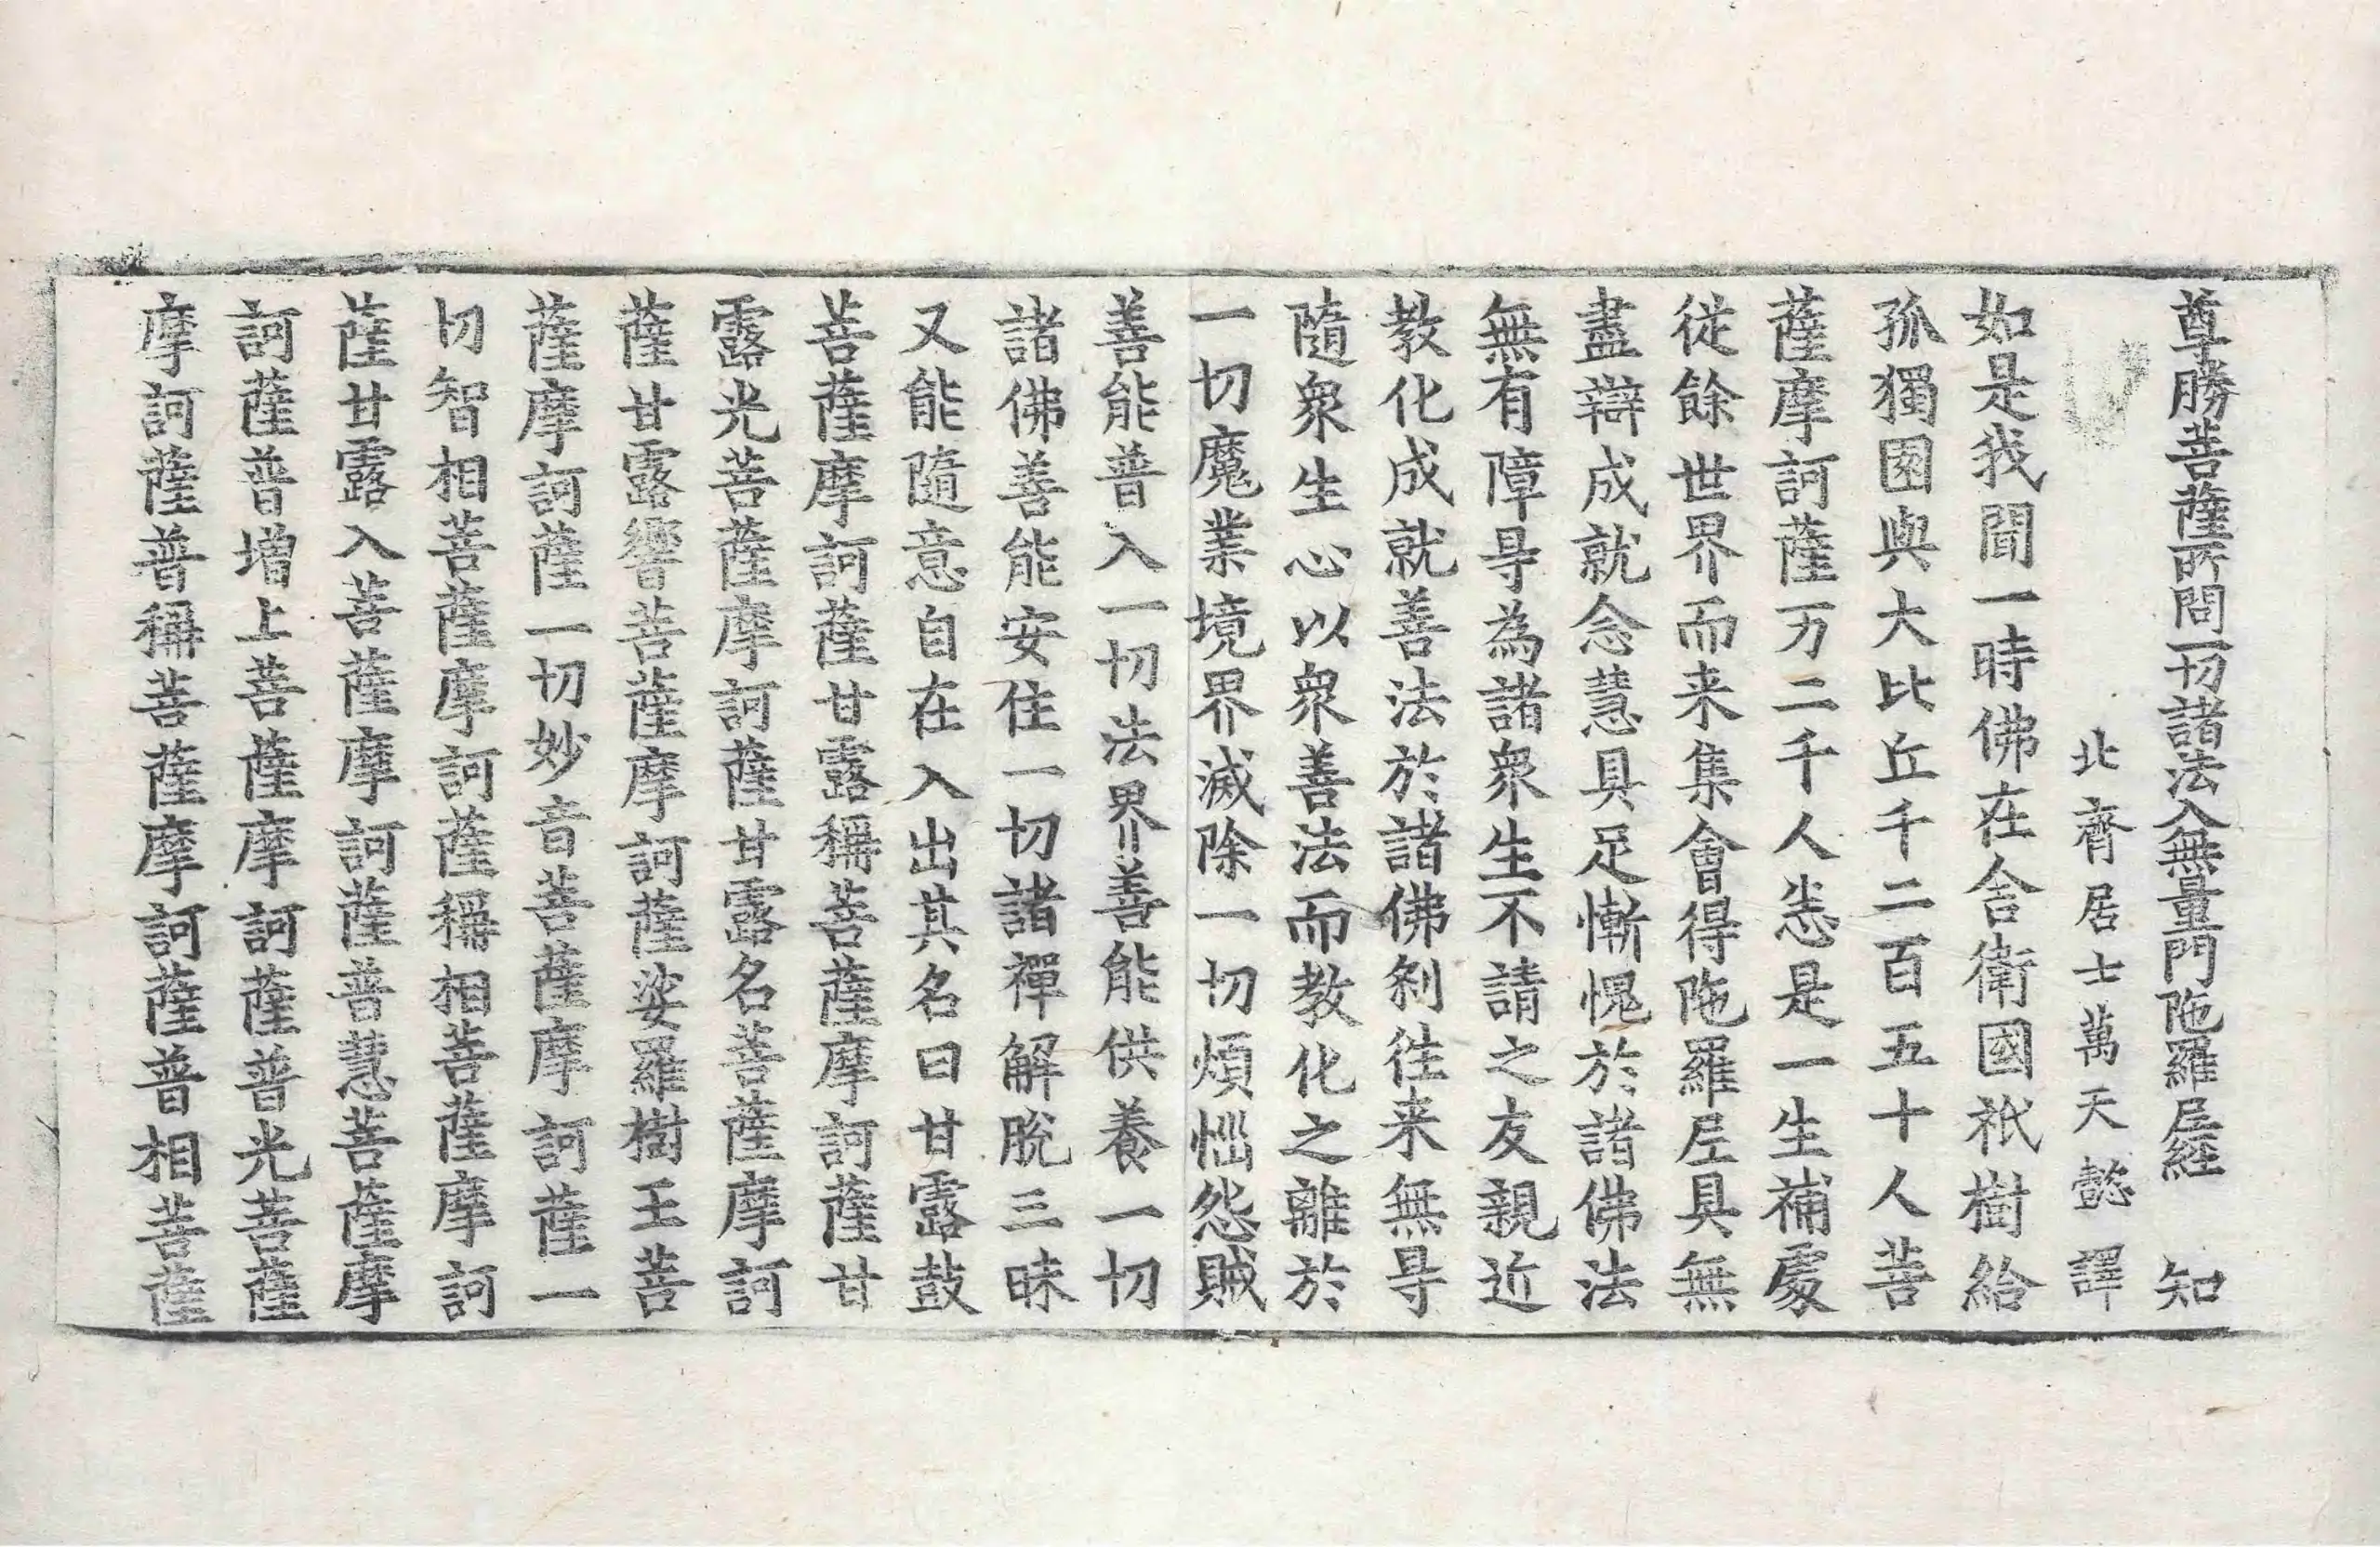 尊勝菩薩所問一切諸法入無量門陁羅尼經 知
北齊居士萬天懿譯
如是我聞一時佛在舍衛國祇樹給
孤獨園與大比丘千二百五十人菩
薩摩訶薩万二千人悉是一生補處
從餘世界而来集會得陁羅尼具無
盡辯成就念慧具足慚愧於諸佛法
無有障㝵為諸衆生不請之友親近
教化成就善法於諸佛刹往来無㝵
隨衆生心以衆善法而教化之離於
一切魔業境界滅除一切煩惱怨賊
善能普入一切法界善能供養一切
諸佛善能安住一切諸禪解脫三昧
又能隨意自在入出其名曰甘露鼓
菩薩摩訶薩甘露稱菩薩摩訶薩甘
露光菩薩摩訶薩甘露名菩薩摩訶
薩甘露響菩薩摩訶薩娑羅樹王菩
薩摩訶薩一切妙音菩薩摩訶薩一
切智相菩薩摩訶薩稱相菩薩摩訶
薩甘露入菩薩摩訶薩普慧菩薩摩
訶薩普增上菩薩摩訶薩普光菩薩
摩訶薩普稱菩薩摩訶薩普相菩薩